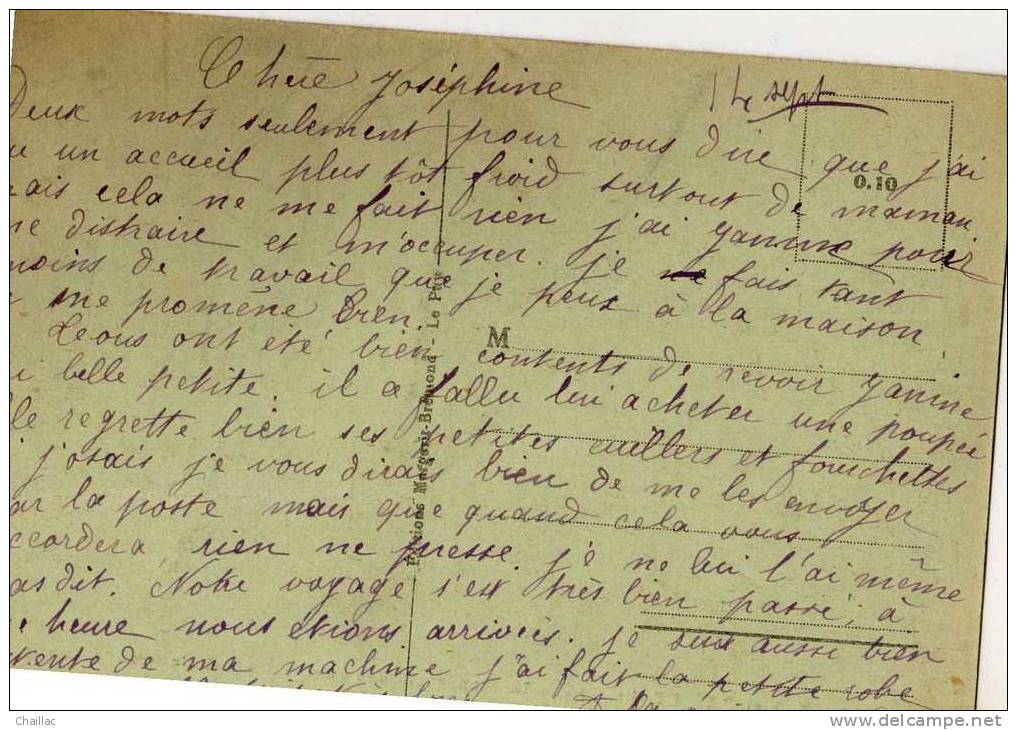 14 sept
Chère Joséphine
Deux mots seulement pour vous dire que j'ai
un accueil plus tôt froid surtout de maman
mais cela ne me fait rien j'ai yanine pour
me distraire et m'occuper. je fais tant
moins de travail que je peux à la maison.
me promène bien.
ont été bien contents de revoir yanine
belle petite. il a fallu lui acheter une poupée
elle regrette bien ses petites cuillers et fouchettes
j'osais je vous dirais bien de me les envoyer
par la poste mais que quand cela vous
accordera rien ne presse. je ne lui l'ai même
pas dit. Notre voyage s'est très bien passé, à
heure nous etions arrivées. je suis aussi bien
contente de ma machine j'ai fait la petite robe
0.10
M
Editions Margerit-Brémond - Le Puy
Chaillac
www.delcampe.net